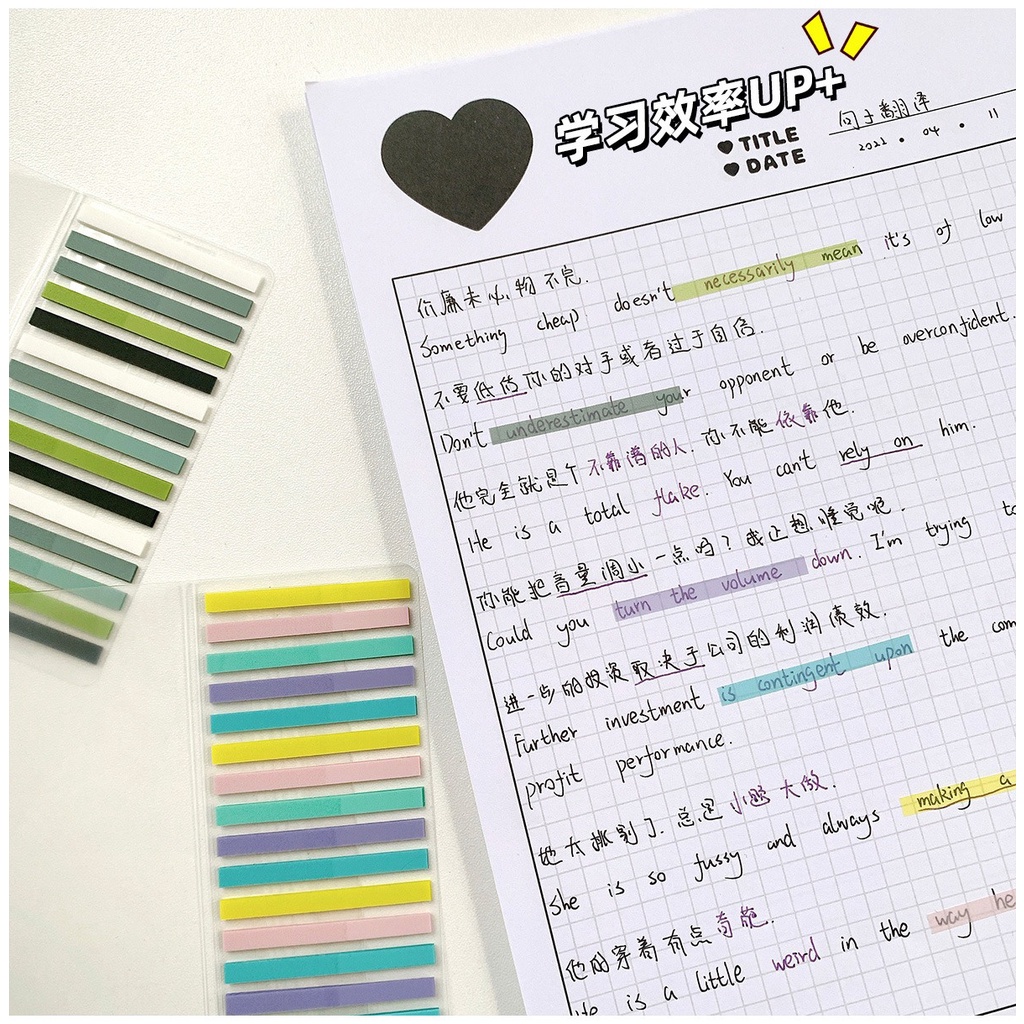 学习效率UP+
TITLE 句子翻译
DATE 2021 · 04 · 11
价廉未必物不完.
Something cheap doesn't necessarily mean it's of low
不要低估你的对手或者过于自信.
Don't underestimate your opponent or be overconfident.
他完全就是个不靠谱的人. 你不能依靠他.
He is a total flake. You can't rely on him.
你能把音量调小一点吗? 我正想睡觉呢.
Could you turn the volume down. I'm trying to
进一步的投资取决于公司的利润绩效.
Further investment is contingent upon the com
profit performance.
她太挑剔了. 总是小题大做.
She is so fussy and always making a
他的穿着有点奇葩.
He is a little weird in the way he